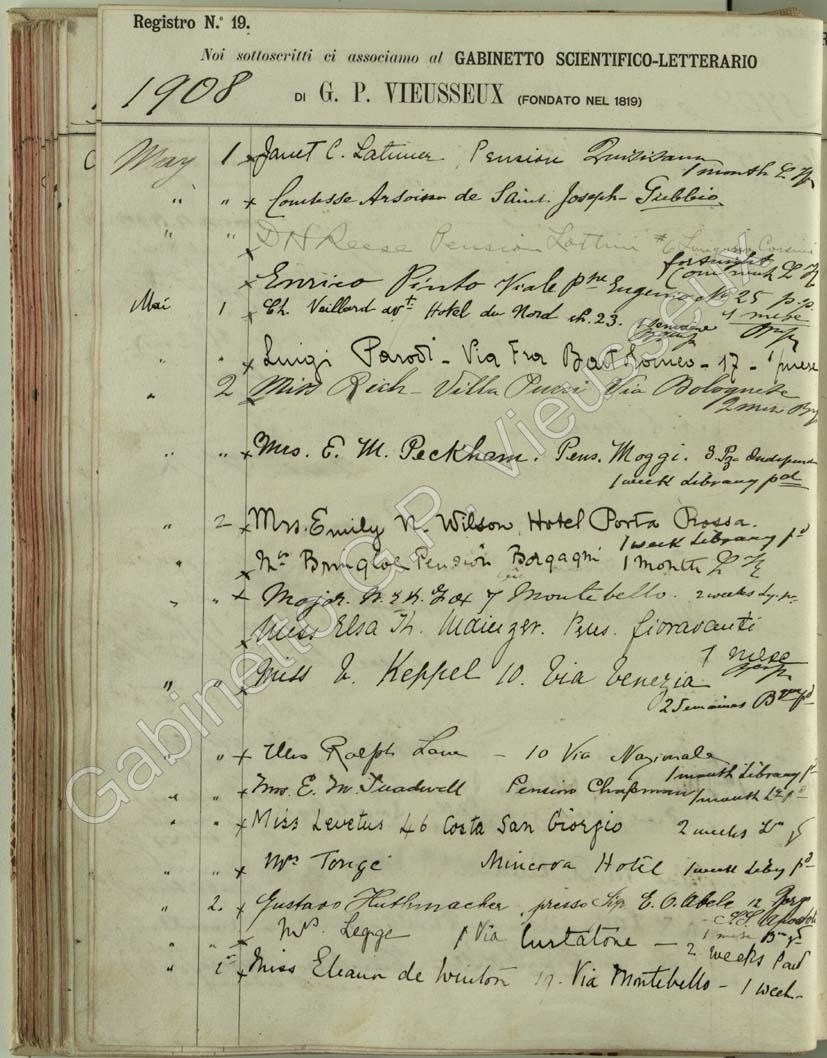 Registro N.° 19.
Noi sottoscritti ci associamo al GABINETTO SCIENTIFICO-LETTERARIO
1908 DI G. P. VIEUSSEUX (FONDATO NEL 1819)
May 1 x Janet C. Latimer Pension
1 month
" " x Comtesse de Saint Joseph - Gubbio
" " D H Reese Pension Lottini # 6 Lungarno Corsini
fortnight
x Enrico Pinto Viale Pne Eugenio No 25 p.p.
1 mese
Mai 1 x Ch. Vaillard Hotel du Nord ch. 23. 1 Semaine
" " x Luigi Parodi - Via Fra Bartolomeo - 17 - 1 mese
" 2 x Miss Rich - Villa Pucci Via Bolognese
2 mesi
" " x Mrs. E. M. Peckham. Pens. Moggi. 3. Pza Independ
1 week Library pd
" 2 x Mrs. Emily N. Wilson, Hotel Porta Rossa.
1 week Library pd
" x Mrs Pension Borgagni 1 month
" " x Major Fox 7 Montebello. 2 weeks
x Miss Elsa Th. Pens. Fioravanti
1 mese
" " x Miss V. Keppel 10. Via Venezia
2 Semaines
" x Ralph Lane - 10 Via Nazionale
1 month Library pd
" " x Mrs. E. M. Treadwell Pension Chapman 1 month
" " x Miss Levetus 46 Costa San Giorgio 2 weeks
" " x Mrs Tonge Minerva Hotel 1 week
" 2. x Gustavo Huthmacher, presso Sig. E. O. Abele 12 Borgo
SS. Apostoli
1 mese
" " x Mrs. Legge 1 Via Curtatone - 2 weeks Paid
" x Miss Eleanor de Winton 17. Via Montebello - 1 week -
Gabinetto G.P. Vieusseux